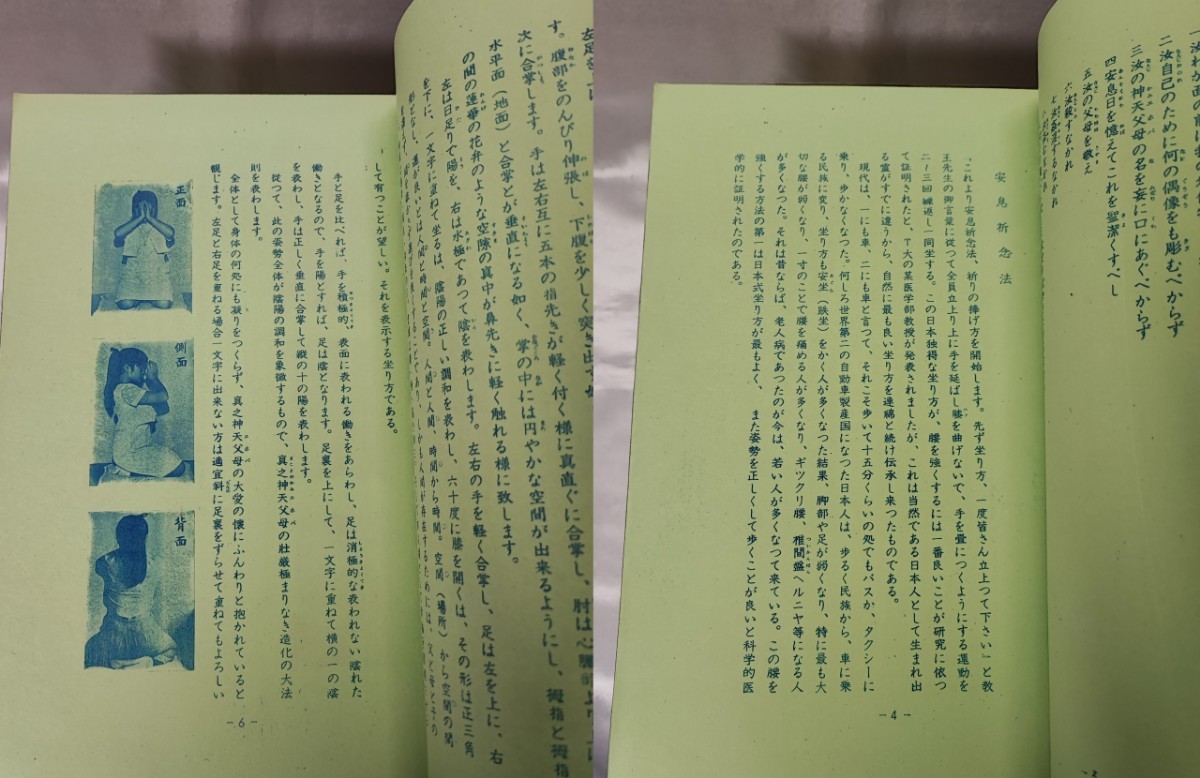 二汝自己のために何の偶像をも彫むべからず
三汝の神天父母の名を妄に口にあぐべからず
四安息日を憶えてこれを聖潔くすべし
五汝の父母を敬え
六汝殺すなかれ
安息祈念法
「これより安息祈念法、祈りの捧げ方を開始します。先ず坐り方、一度皆さん立上つて下さい」と教
王先生の御言葉に従つて全員立上り上に手を延ばし膝を曲げないで、手を畳につくようにする運動を
二・三回繰返し一同坐する。この日本独得な坐り方が、腰を強くするには一番良いことが研究に依つ
て証明されたと、T大の某医学部教授が発表されましたが、これは当然である日本人として生まれ出
る霊がすでに違うから、自然に最も良い坐り方を連綿と続け伝承し来つたものである。
現代は、一にも車、二にも車と言つて、それこそ歩いて十五分くらいの処でもバスか、タクシーに
乗り、歩かなくなつた。何しろ世界第二の自動車製産国になつた日本人は、歩るく民族から、車に乗
る民族に変り、坐り方も安坐（趺坐）をかく人が多くなつた結果、脚部や足が弱くなり、特に最も大
切な腰が弱くなり、一寸のことで腰を痛める人が多くなり、ギツクリ腰、椎間盤ヘルニヤ等になる人
が多くなつた。それは昔ならば、老人病であつたのが今は、若い人が多くなつて来ている。この腰を
強くする方法の第一は日本式坐り方が最もよく、また姿勢を正しくして歩くことが良いと科学的医
学的に証明されたのである。
－4－
す。腹部をのんびり伸張し、下腹を少しく突き出
次に合掌します。手は左右互に五本の指先きが軽く付く様に真直ぐに合掌し、肘は心臓
水平面（地面）と合掌とが垂直になる如く、掌の中には円やかな空間が出来るようにし、拇指と拇指
の間の蓮華の花弁のような空隙の真中が鼻先きに軽く触れる様に致します。
左は日足りで陽を、右は水極であつて陰を表わします。左右の手を軽く合掌し、足は左を上に、右
を下に、一文字に重ねて坐るは、陰陽の正しい調和を表わし、六十度に膝を開くは、その形は正三角
して有つことが望しい。それを表示する坐り方である。
手と足を比べれば、手を積極的、表面に表われる働きをあらわし、足は消極的な表われない陰れた
働きとなるので、手を陽とすれば、足は陰となります。足裏を上にして、一文字に重ねて横の一の陰
を表わし、手は正しく垂直に合掌して縦の十の陽を表わします。
従つて、此の姿勢全体が陰陽の調和を象徴するもので、真之神天父母の壮厳極まりなき造化の大法
則を表わします。
全体として身体の何処にも凝りをつくらず、真之神天父母の大愛の懐にふんわりと抱かれていると
観じます。左足と右足を重ねる場合一文字に出来ない方は適宜斜に足裏をずらせて重ねてもよろしい
正面
側面
背面
－6－